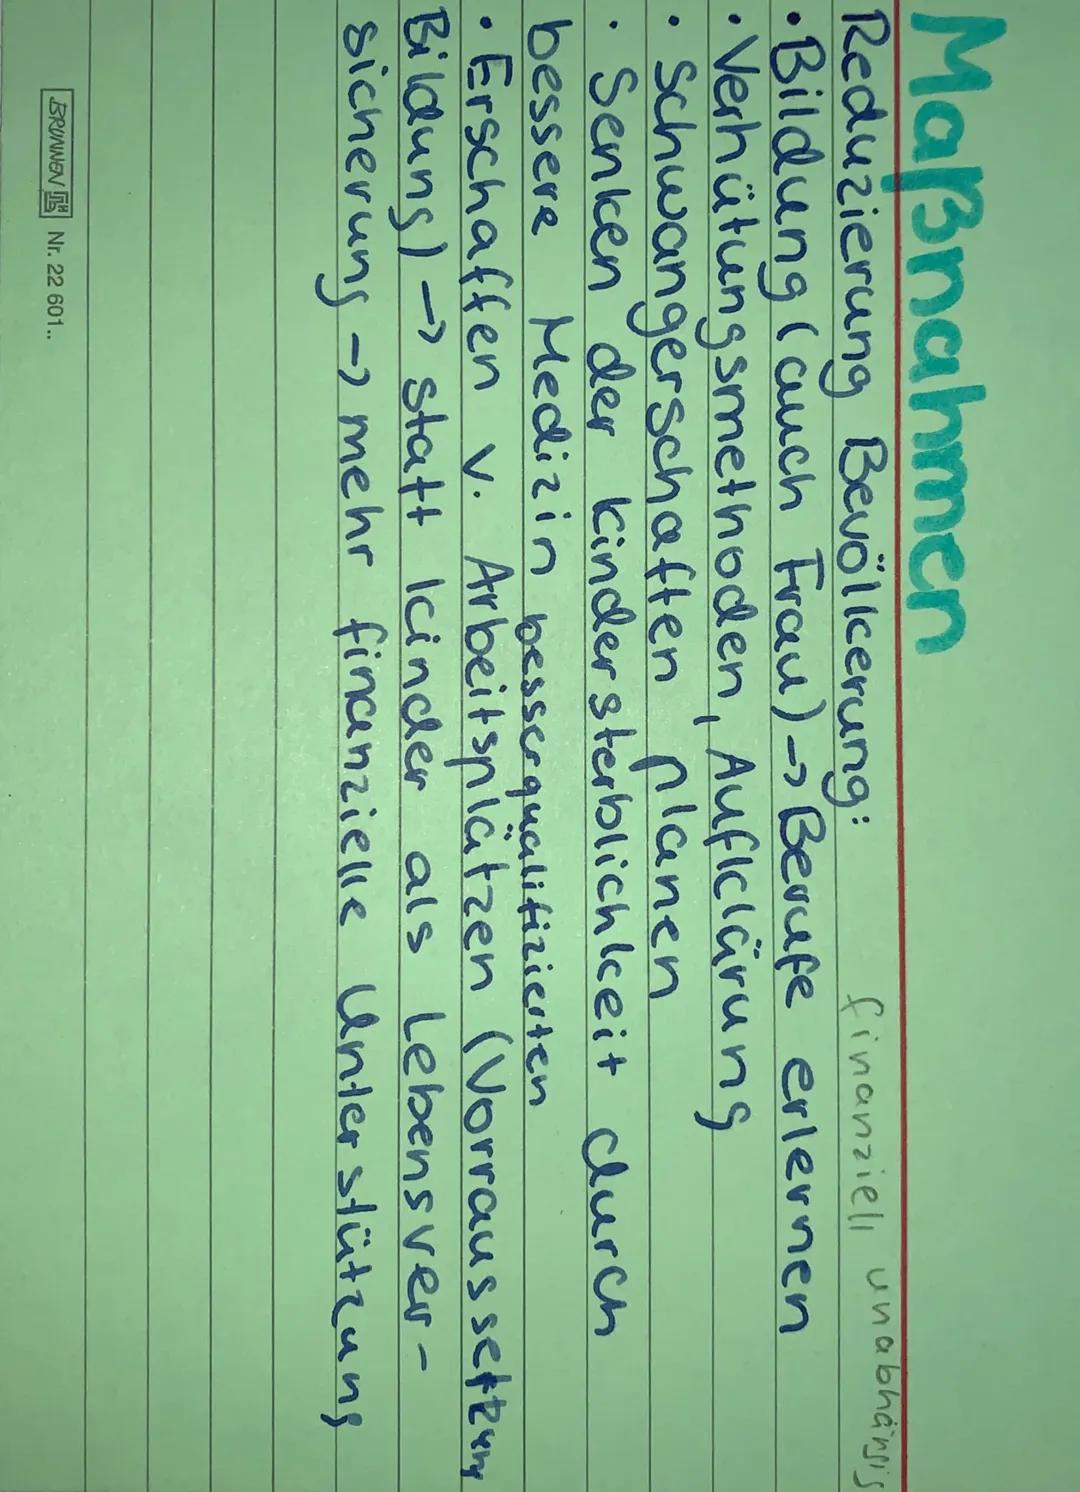 Maßnahmen
finanziell unabhängig
Reduzierung Bevölkerung:
• Bildung (auch Frau) -> Berufe erlernen
• Verhütungsmethoden, Aufklärung
• Schwangerschaften planen
• Senken der Kindersterblichkeit durch
bessere Medizin besserqualifizierten
• Erschaffen v. Arbeitsplätzen (Vorraussetzung
Bildung) -> statt Kinder als Lebensver-
sicherung -> mehr finanzielle Unterstützung
BRUNNEN Nr. 22 601..